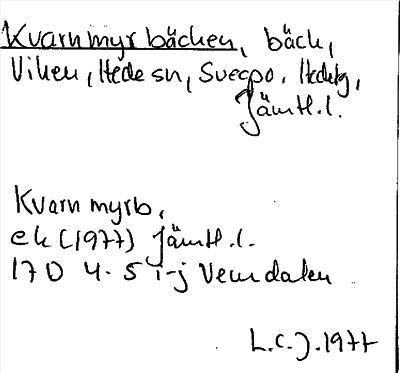 Kvarnmyrbäcken, bäck,
Viken, Hede sn, Svegpo. Hedebg,
Jämtl.l.
Kvarnmyrb,
ek (1977) Jämtl.l.
17D 4-5 i-j Vemdalen
L.C.J. 1977